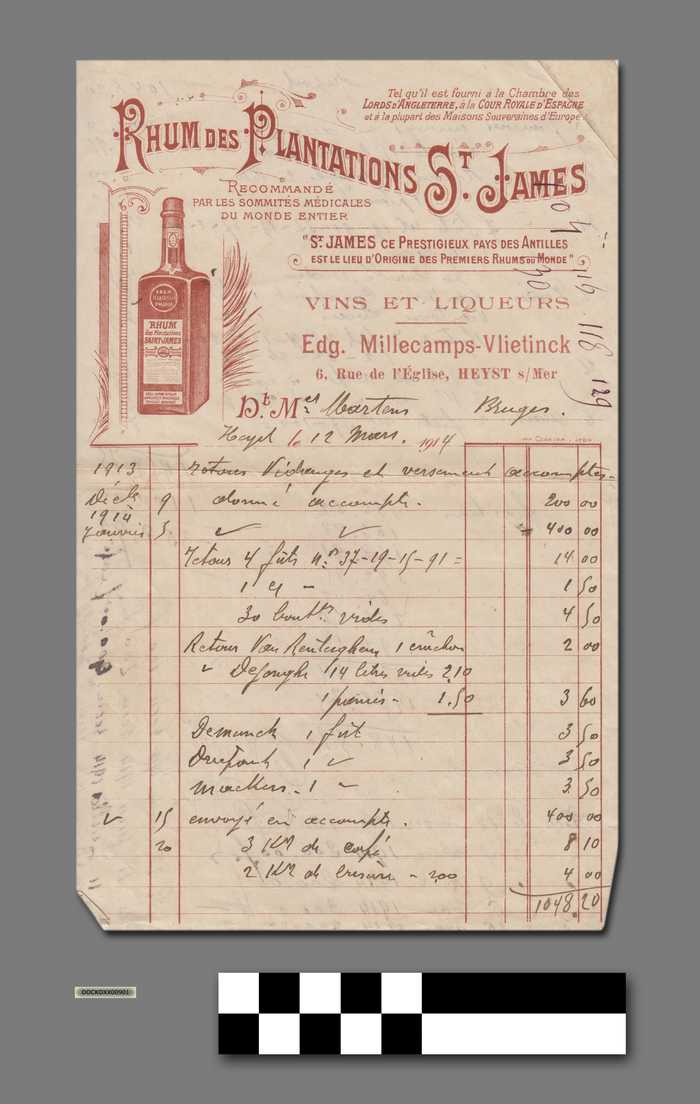 Tel qu'il est fourni à la Chambre des
LORDS D'ANGLETERRE, à la COUR ROYALE D'ESPAGNE
et à la plupart des Maisons Souveraines d'Europe
RHUM DES PLANTATIONS ST JAMES
RECOMMANDÉ
PAR LES SOMMITÉS MÉDICALES
DU MONDE ENTIER
"ST JAMES CE PRESTIGIEUX PAYS DES ANTILLES
EST LE LIEU D'ORIGINE DES PREMIERS RHUMS DU MONDE"
RHUM
des Plantations
SAINT-JAMES
VINS ET LIQUEURS
Edg. Millecamps-Vlietinck
6, Rue de l'Église, HEYST s/Mer
Dt Mel Martens Bruges.
Heyst le 12 Mars. 1914
1913 retours Vidanges et versement accomptes
Déch 9 donné accompte. 200 00
1914
Janvier 5 " " 400 00
Retour 4 fûts nos 37-19-15-91 = 14 00
1 " - 1 50
30 boutles vides 4 50
Retour Van 1 crûchon 2 00
" Dejonghe 14 litres vides 2,10
1 panier - 1.50 3 60
Demunck 1 fût 3 50
1 " 3 50
Mackers - 1 " 3 50
" 15 envoyé en accompte. 400 00
20 3 K de café 8 10
2 K de - 2,00 4 00
1048.20
118
129
OOCKDXX00901